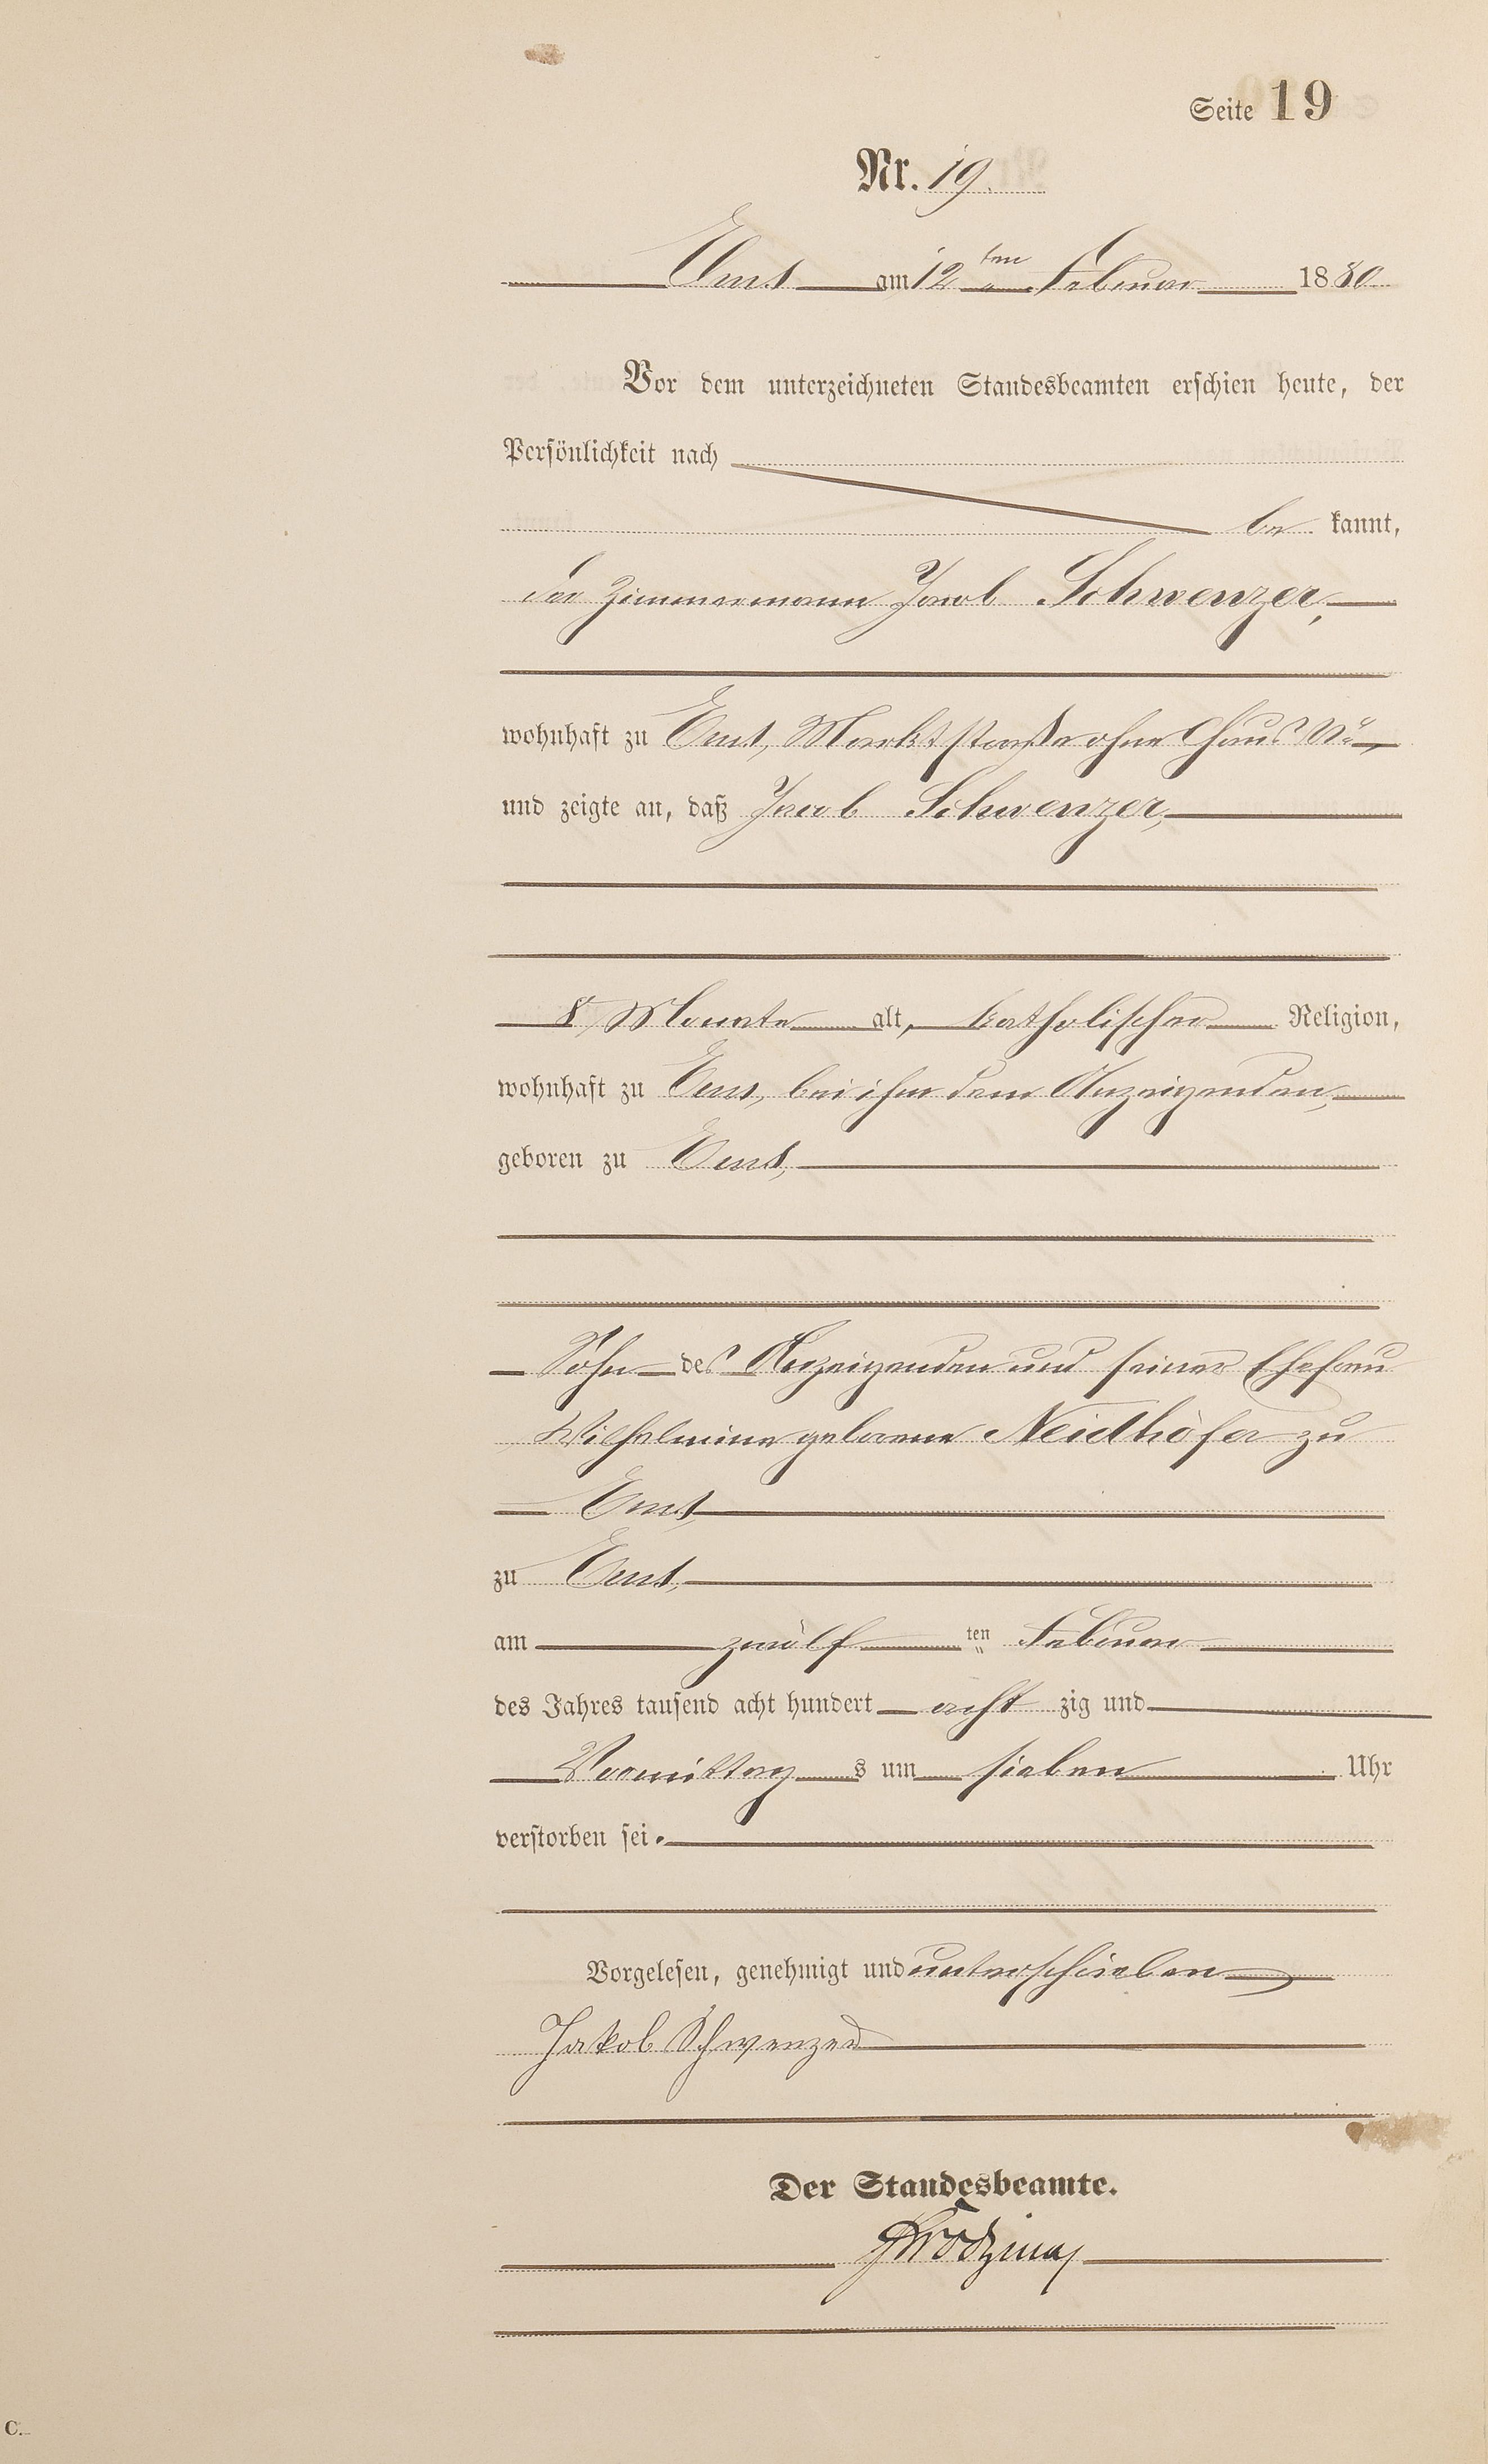 Seite 19
Nr. 19.
Ems am 12ten Februar 1880
Vor dem unterzeichneten Standesbeamten erschien heute, der
Persönlichkeit nach
be kannt,
der Zimmermann Jacob Schwenzer,
wohnhaft zu Ems, Marktstraße ohne Haus No,
und zeigte an, daß Jacob Schwenzer,
8 Monate alt, katholischer Religion,
wohnhaft zu Ems, bei ihm dem Anzeigenden,
geboren zu Ems,
Sohn des Anzeigenden und seiner Ehefrau
Wilhelmine geborene Neidhöfer zu
Ems
zu Ems,
am zwölf ten Februar
des Jahres tausend acht hundert acht zig und
Vormittag s um sieben Uhr
verstorben sei.
Vorgelesen, genehmigt und unterschrieben
Jakob Schwenzer
Der Standesbeamte.
C.